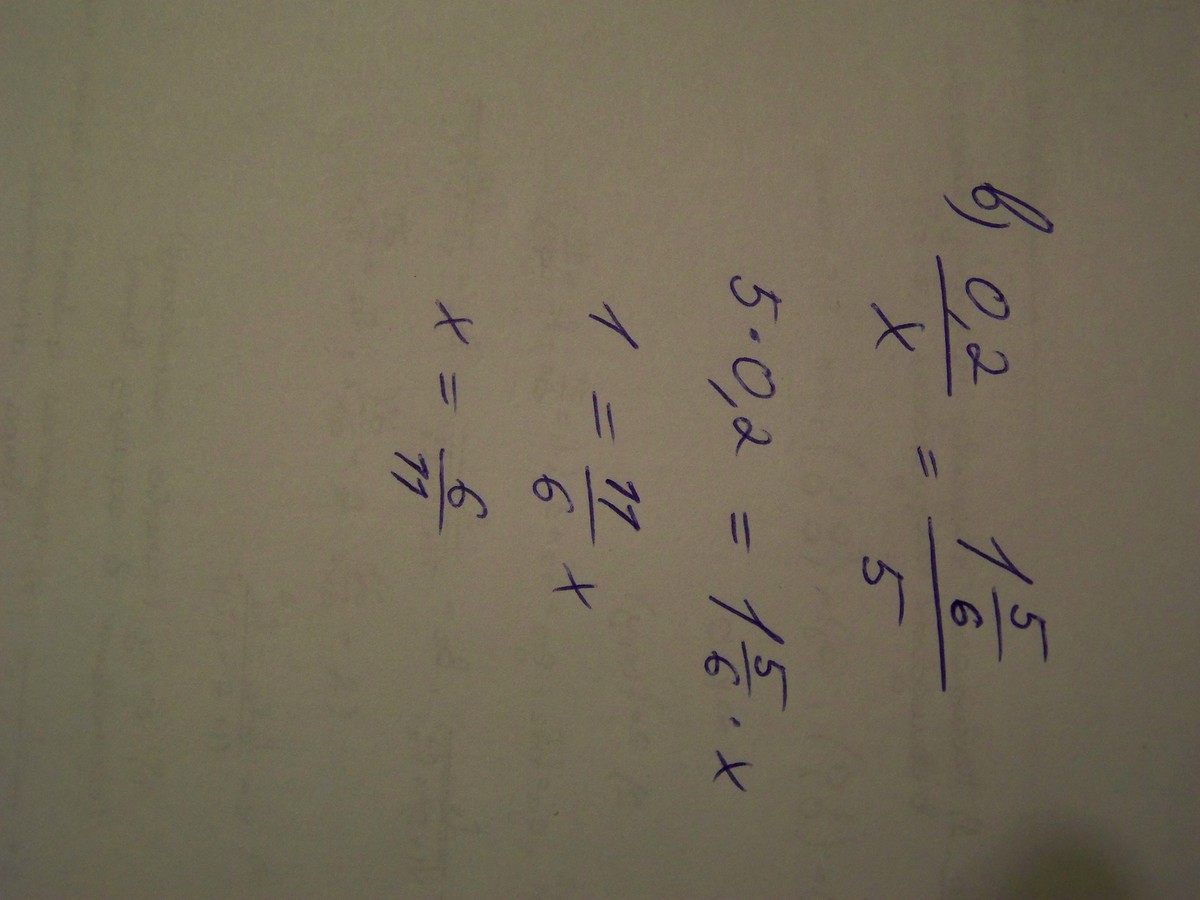 в) 0,2/x = 1 5/6 / 5
5 · 0,2 = 1 5/6 · x
1 = 11/6 x
x = 6/11